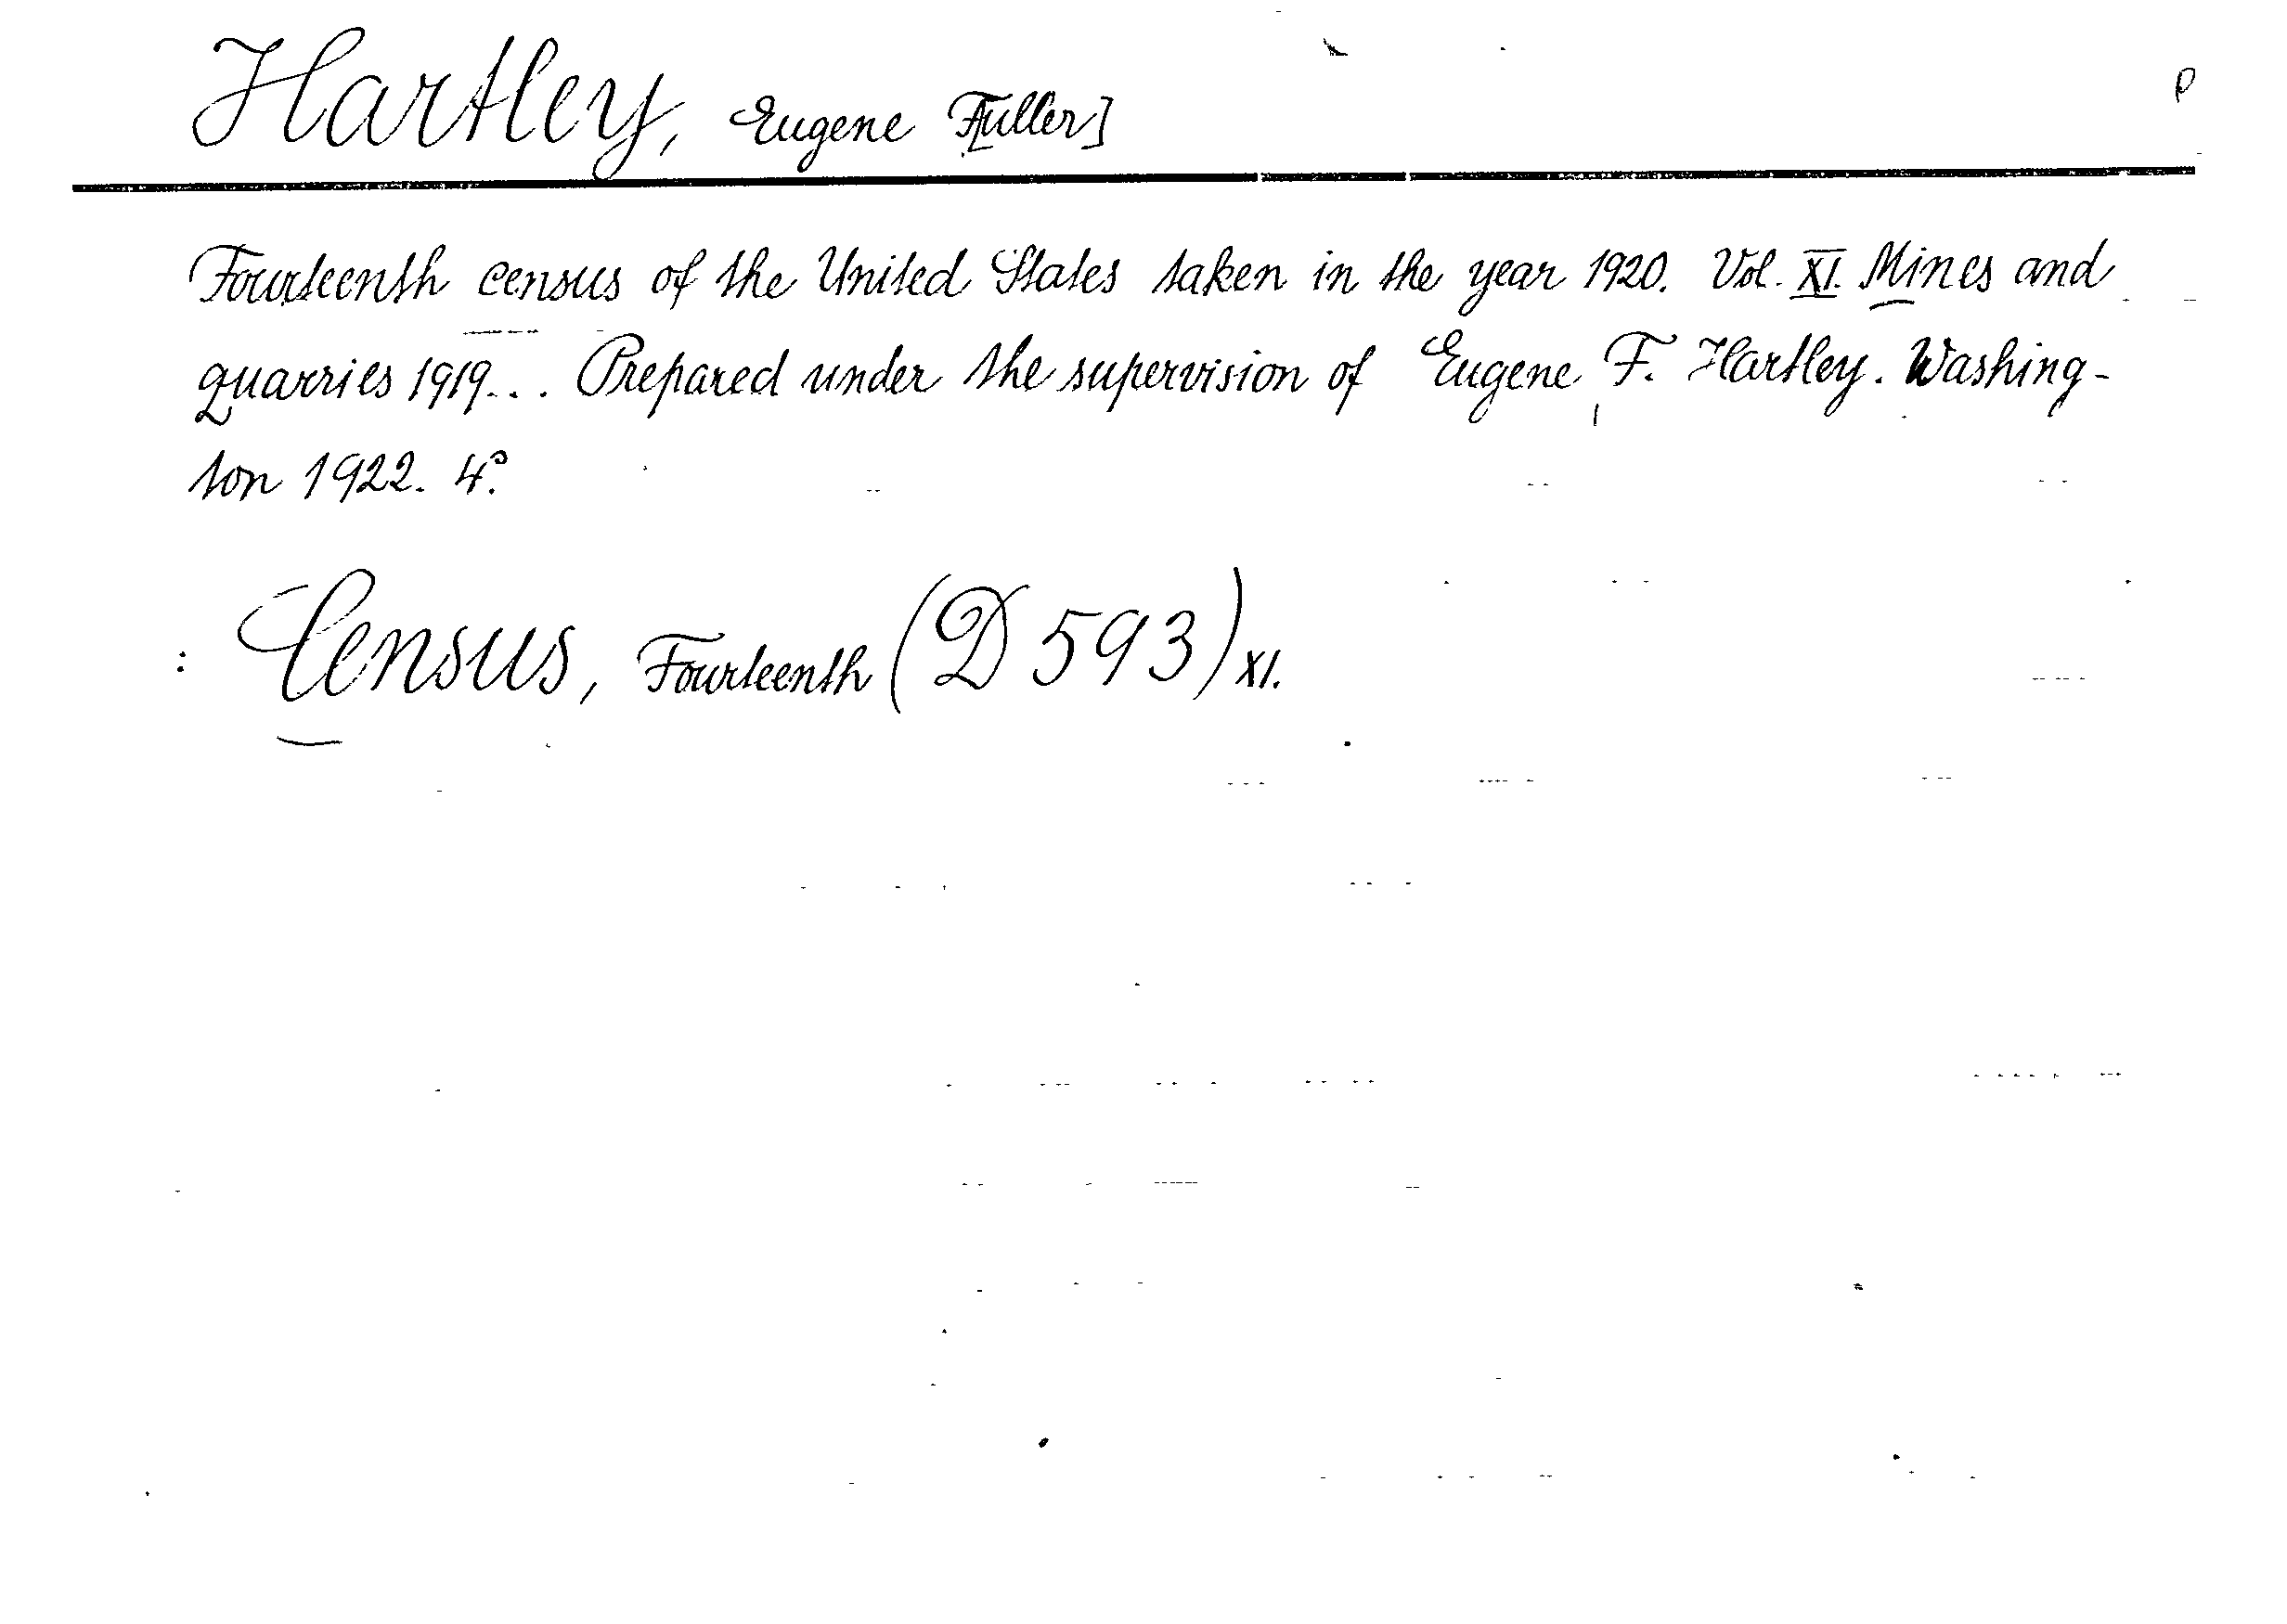 Hartley, Eugene F[uller]
Fourteenth census of the United States taken in the year 1920. Vol. XI. Mines and
quarries 1919... Prepared under the supervision of Eugene F. Hartley. Washing-
ton 1922. 4°.
: Census, Fourteenth (D 593) XI.